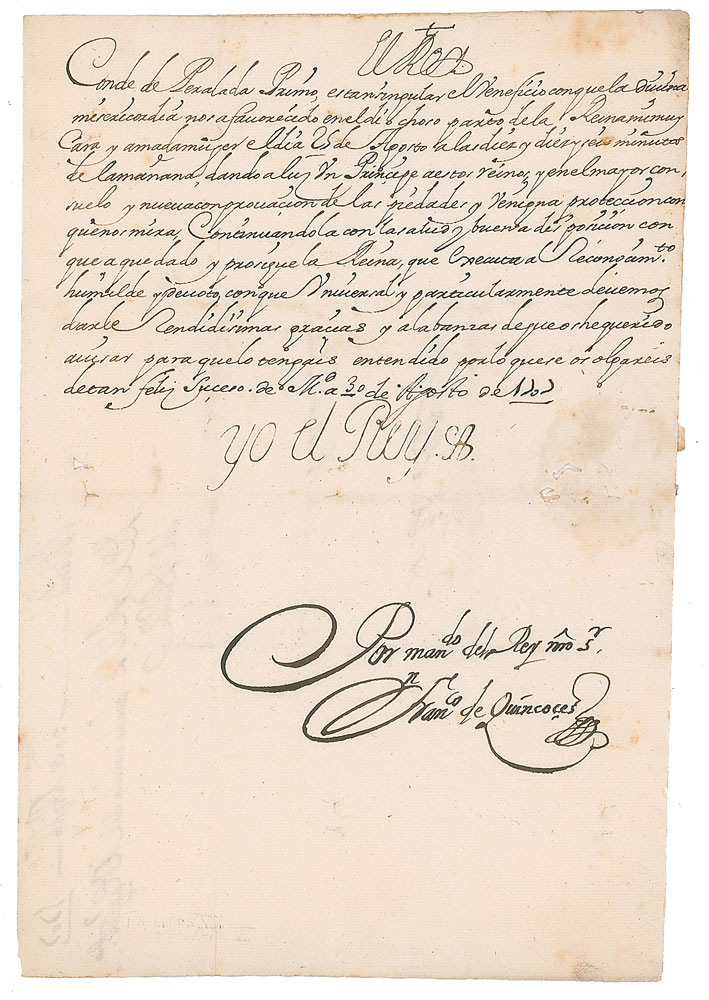 El Rey
Conde de Peralada Primo, es tan singular el Veneficio con que la divina
misericordia nos a favorecido en el dichoso parto de la Reina mi muy
Cara y amada muger el dia 25 de Agosto a las diez y diez y seis minutos
de la mañana dando a luz Un Principe a estos reinos, y en el mayor con
suelo y nueva conprovacion de las piedades y Venigna proteccion con
que nos mira, Continuandola con la salud y buena disposicion con
que a quedado y prosigue la Reina, que executa a Reconoçim.to
humilde y devoto, con que Universal y particularmente devemos
darle Rendidisimas graçias y alabanzas de que os he querido
avisar para que lo tengais entendido por lo que se os olgareis
de tan feliz Suçeso. de M.d a 30 de Agosto de
yo el Rey
Por man.do del Rey nro S.r
D.n Fran.co de Quincoçes